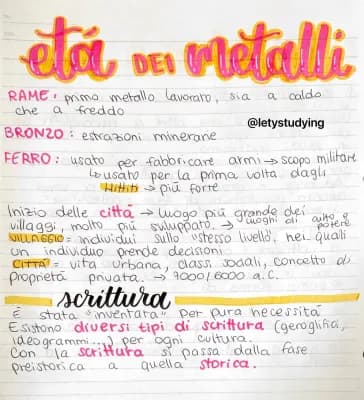 etá DEI metalli
RAME: primo metallo lavorato, sia a caldo
che a freddo
@letystudying
BRONZO: estrazioni minerarie
FERRO: usato per fabbricare armi → scopo militare
↳ usato per la prima volta dagli
Hittiti → più forte
Inizio delle città → luogo più grande dei
villaggi, molto più sviluppato. → luoghi di culto e potere
VILLAGGIO = individui sullo "stesso livello", nei quali
un individuo prende decisioni
CITTÀ = vita urbana, classi sociali, concetto di
proprietà privata. → 7000/6000 a.C.
scrittura
È stata "inventata" per pura necessità
Esistono diversi tipi di scrittura (geroglifici,
ideogrammi...) per ogni cultura.
Con la scrittura si passa dalla fase
preistorica a quella storica.